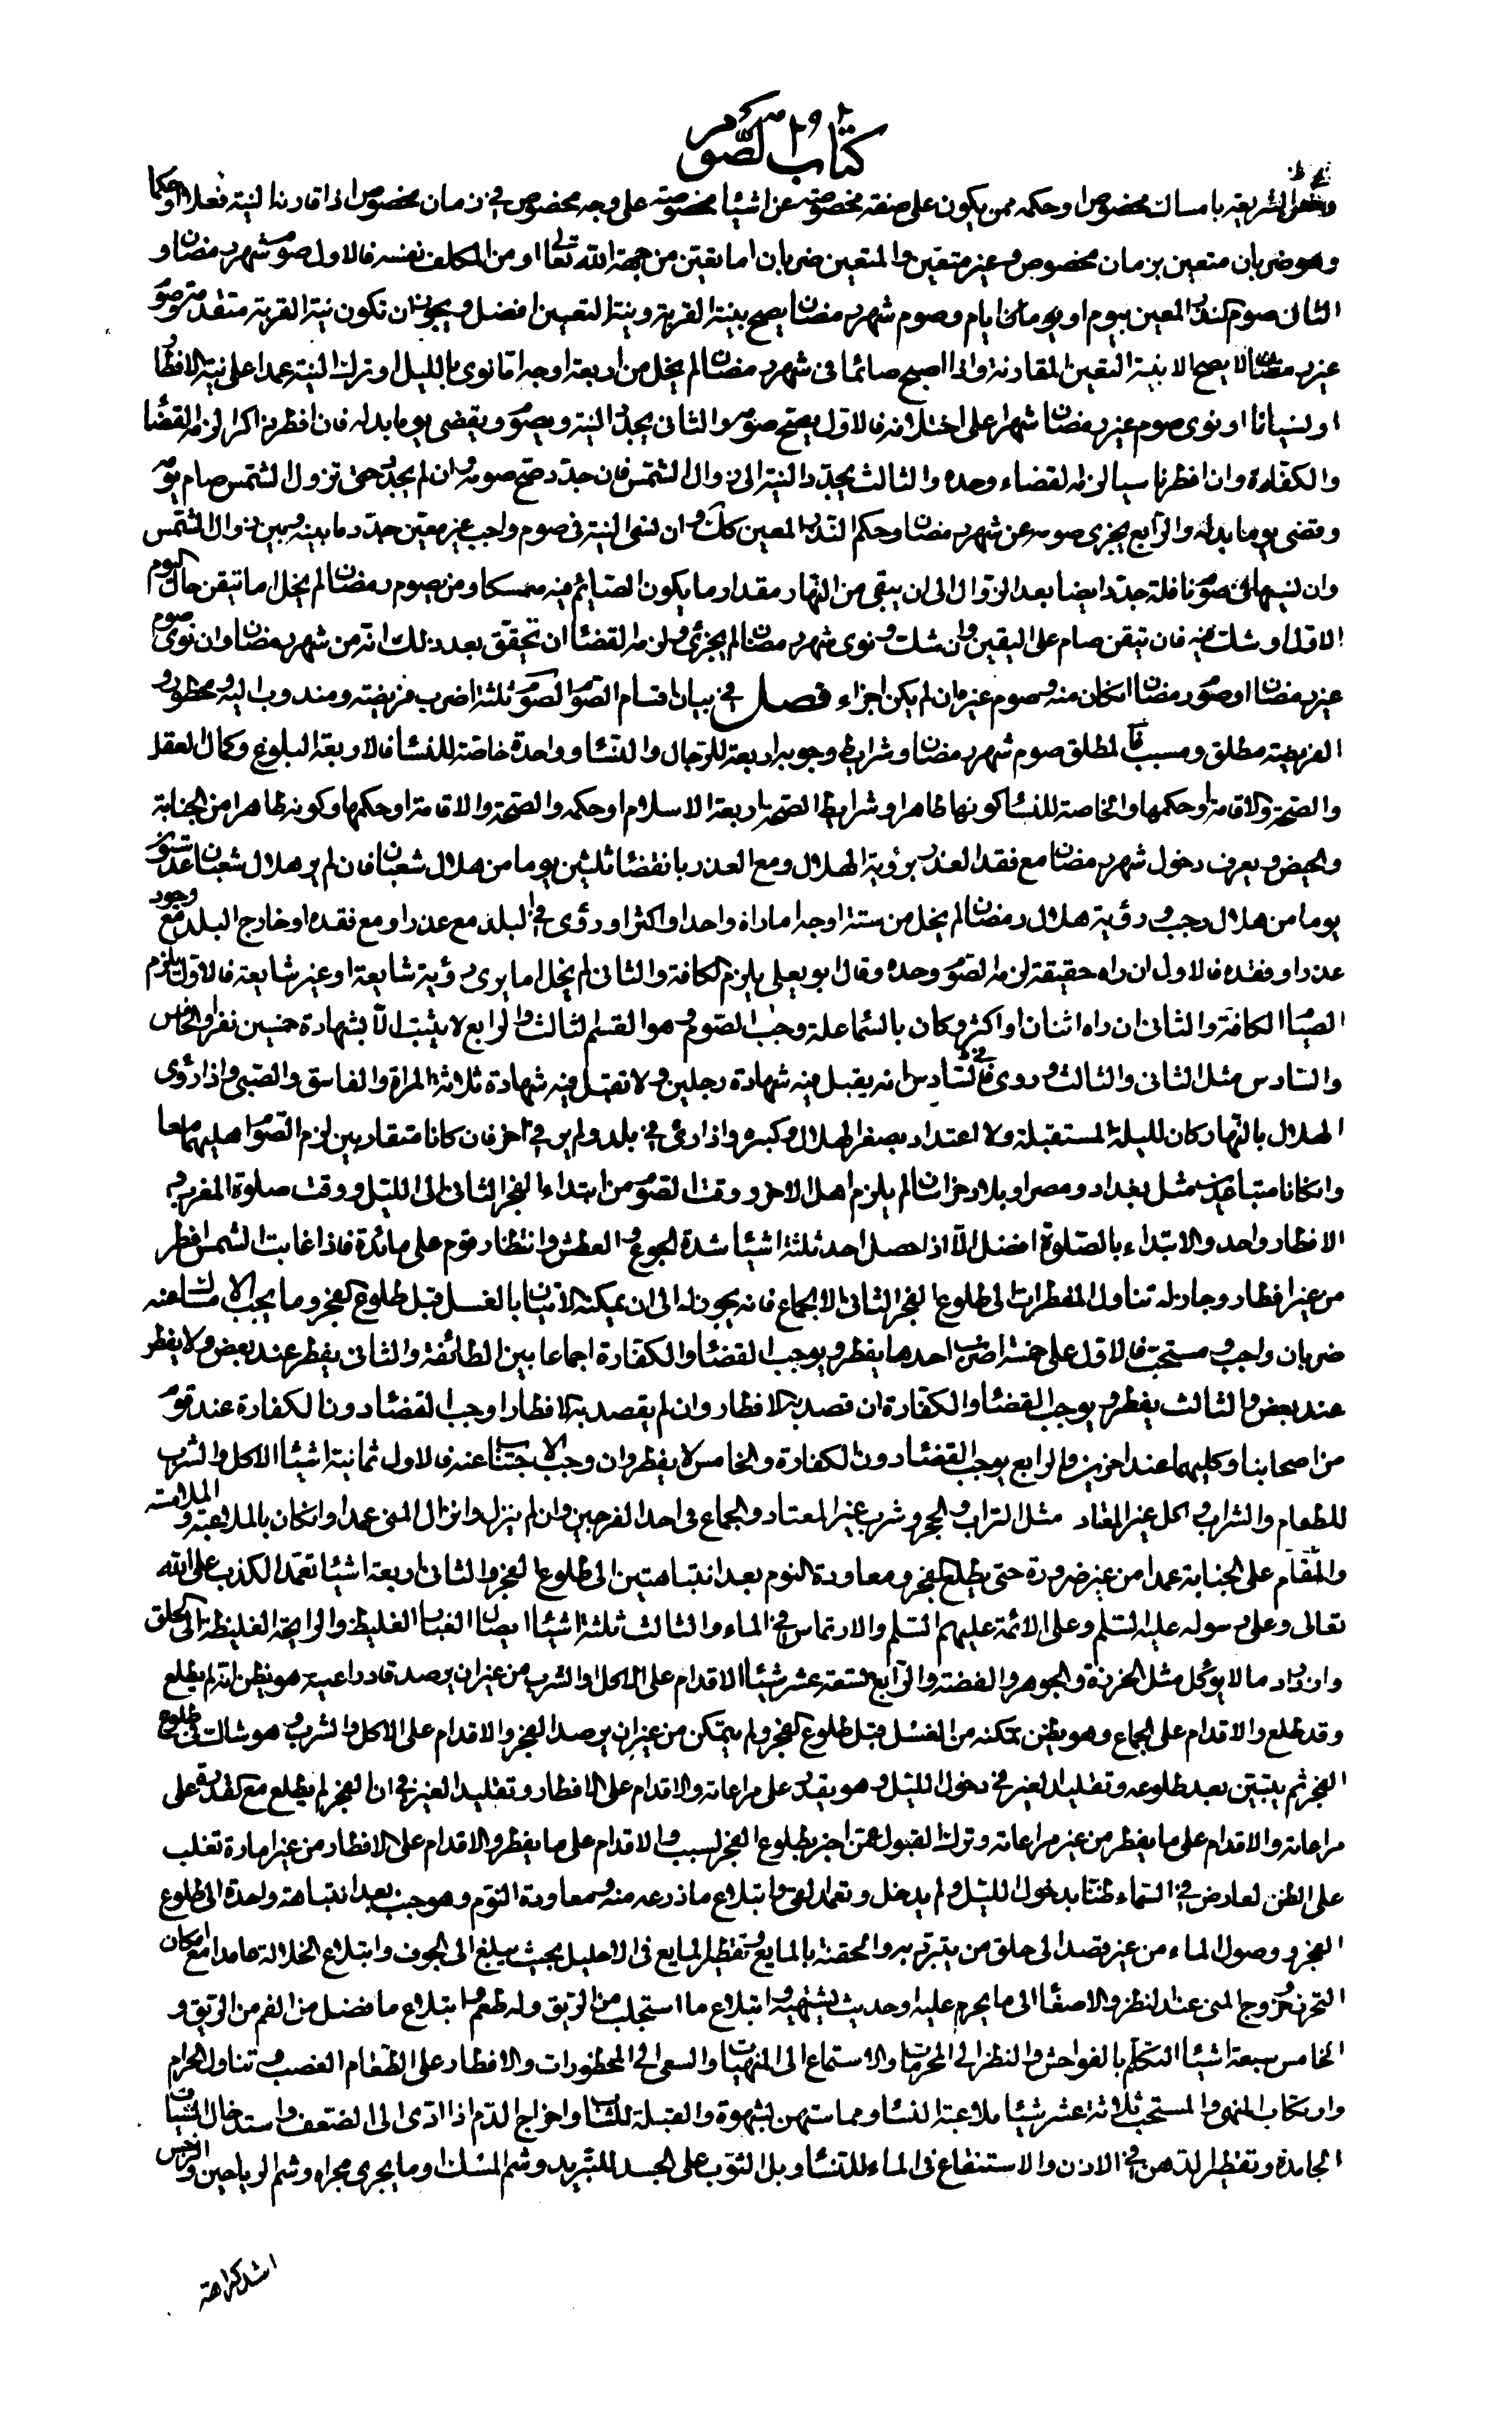 كتاب الصوم
وهو فى الشريعة امساك مخصوص او حكمه ممن يكون على صفة مخصوصة عن اشياء مخصوصة على وجه مخصوص فى زمان مخصوص اذا قارنه النية فعلا او حكما
وهو ضربان متعين بزمان مخصوص وغير متعين والمتعين ضربان اما يتعين من جهة الله تعالى او من المكلف نفسه فالاول صوم شهر رمضان و
الثانى صوم النذر المعين بيوم او يومان او ايام وصوم شهر رمضان يصح بنية القربة ونية التعيين افضل ويجوز ان تكون نية القربة متقدمة وصوم
غير رمضان لا يصح الا بنية التعيين المقارنة واذا اصبح صائما فى شهر رمضان لم يخل من اربعة اوجه اما نوى بالليل او ترك النية عمدا على نية الافطار
او نسيانا او نوى صوم غير رمضان شهرا على اختلافه فالاول يصح صومه والثانى يجدد النية ويصوم ويقضى يوما بدله فان افطر ذاكرا لزمه القضاء
والكفارة وان افطر ناسيا لزمه القضاء وحده والثالث يجدد النية الى زوال الشمس فان جدد صح صومه وان لم يجدد حتى تزول الشمس صام يومه
وقضى يوما بدله والرابع يجزى صومه عن شهر رمضان وحكم النذر المعين كك وان نسى النية فى صوم واجب غير معين جدد ما بينه وبين زوال الشمس
وان نسيها فى صوم نافلة جدد ايضا بعد الزوال الى ان يبقى من النهار مقدار ما يكون الصايم فيه ممسكا ومن يصوم رمضان لم يخل اما تيقن حال اليوم
الاول او شك فيه فان تيقن صام على اليقين وان شك ونوى شهر رمضان لم يجزئ ولزمه القضاء ان تحقق بعد ذلك انه من شهر رمضان وان نوى صوم
غير رمضان او صوم رمضان ان كان منه وصوم غيره ان لم يكن اجزاء فصل فى بيان اقسام الصوم الصوم ثلثة اضرب فريضة ومندوب اليه ومحظور و
الفريضة مطلق ومسبب فالمطلق صوم شهر رمضان وشرايط وجوبه اربعة للرجال والنساء وواحدة خاصة للنساء فالاربعة البلوغ وكمال العقل
والصحة والاقامة او حكمها والخاصة للنساء كونها طاهرا وشرايط الصحة اربعة الاسلام او حكمه والصحة والاقامة او حكمها وكونه طاهرا من الجنابة
والحيض ويعرف دخول شهر رمضان مع فقد العذر برؤية الهلال ومع العذر بانقضاء ثلثين يوما من هلال شعبان فان لم ير هلال شعبان عد ستون
يوما من هلال رجب ورؤية هلال رمضان لم يخل من ستة اوجه اما راه واحد او اكثر او رؤى فى البلد مع عذر او مع فقده او خارج البلد مع وجود
عذر او فقده فالاول ان راه حقيقة لزمه الصوم وحده وقال ابو يعلى يلزم الكافة والثانى لم يخل اما يرى رؤية شايعة او غير شايعة فالاول يلزم
الصيام الكافة والثانى ان راه اثنان او اكثر وكان بالسماء علة وجب الصوم وهو القسم الثالث والرابع لا يثبت الا بشهادة خمسين نفرا والخامس
والسادس مثل الثانى والثالث وروى فى السادس انه يقبل فيه شهادة رجلين ولا تقبل فيه شهادة ثلاثة المراة والفاسق والصبى واذا رؤى
الهلال بالنهار كان لليلة المستقبلة ولا اعتداد بصغر الهلال وكبره واذا رئى فى بلد ولم ير فى اخر فان كانا متقاربين لزم الصوم اهليهما معا
وان كانا متباعدين مثل بغداد ومصر او بلاد خراسان لم يلزم اهل الاخر ووقت الصوم من ابتداء الفجر الثانى الى الليل ووقت صلوة المغرب و
الافطار واحد والابتداء بالصلوة افضل الا اذا حصل احد ثلثة اشياء شدة الجوع والعطش وانتظار قوم على مائدة فاذا غابت الشمس افطر
من غير افطار وجاز له تناول المفطرات الى طلوع الفجر الثانى الا الجماع فانه يجوز له الى ان يمكنه الاتيان بالغسل قبل طلوع الفجر وما يجب الامساك عنه
ضربان واجب ومستحب فالاول على خمسة اضرب احدها يفطر ويوجب القضاء والكفارة اجماعا بين الطائفة والثانى يفطر عند بعض ولا يفطر
عند بعض والثالث يفطر ويوجب القضاء والكفارة ان قصد به الافطار وان لم يقصد به الافطار اوجب القضاء دون الكفارة عند قوم
من اصحابنا وكليهما عند اخرين والرابع يوجب القضاء دون الكفارة والخامس لا يفطر وان وجب الاجتناب عنه فالاول ثمانية اشياء الاكل والشرب
للطعام والشراب واكل غير المعتاد مثل التراب والحجر وشرب غير المعتاد والجماع فى احد الفرجين وان لم ينزل وانزال المنى عمدا وان كان بالملاعبة والملامسة
والمقام على الجنابة عمدا من غير ضرورة حتى يطلع الفجر ومعاودة النوم بعد انتباهتين الى طلوع الفجر والثانى اربعة اشياء تعمد الكذب على الله
تعالى وعلى رسوله عليه السلم وعلى الائمة عليهم السلم والارتماس فى الماء والثالث ثلثة اشياء ايصال الغبار الغليظ والرايحة الغليظة الى الحلق
وازدراد ما لا يوكل مثل الخرزة والجوهر والفضة والرابع تسعة عشر شيئا الاقدام على الاكل والشرب من غير ان يرصد قادرا عليه هو يظن انه لم يطلع
وقد طلع والاقدام على الجماع وهو يظن تمكنه من الغسل قبل طلوع الفجر ولم يتمكن من غير ان يرصد الفجر والاقدام على الاكل والشرب وهو شاك فى طلوع
الفجر ثم يتبين بعد طلوعه وتقليد الغير فى دخول الليل وهو يقدر على مراعاته والاقدام على الافطار وتقليد الغير فى ان الفجر لم يطلع مع القدرة على
مراعاته والاقدام على ما يفطر من غير مراعاته وترك القبول عمن اخبر بطلوع الفجر لسبب والاقدام على ما يفطر والاقدام على الافطار من غير امارة تغلب
على الظن لعارض فى السماء ظنا بدخول الليل ولم يدخل وتعمد القئ وابتلاع ما ذرعه منه ومعاودة النوم وهو جنب بعد انتباهة واحدة الى طلوع
الفجر ووصول الماء من غير قصد الى حلق من يتبرد به والحقنة بالمايع وتقطير المايع فى الاحليل بحيث يبلغ الى الجوف وابتلاع الخلالة عامدا مع امكان
التحرز وخروج المنى عند النظر والاصغاء الى ما يحرم عليه او حديث يشتهيه وابتلاع ما استجلب من الريق وله طعم وابتلاع ما فضل من الفم من الريق و
الخامس سبعة اشياء التكلم بالفواحش والنظر الى المحرمات والاستماع الى المنهيات والسعى الى المحظورات والافطار على الطعام الغصب وتناول الحرام
وارتكاب المنهى والمستحب ثلاثة عشر شيئا ملاعبة النساء ومماستهن بشهوة والقبلة للشاب واخراج الدم اذا ادى الى الضعف واستدخال الشياف
الجامدة وتقطير الدهن فى الاذن والاستنقاع فى الماء للنساء وبل الثوب على الجسد للتبريد وشم المسك وما يجرى مجراه وشم الرياحين والنرجس
اشد كراهة